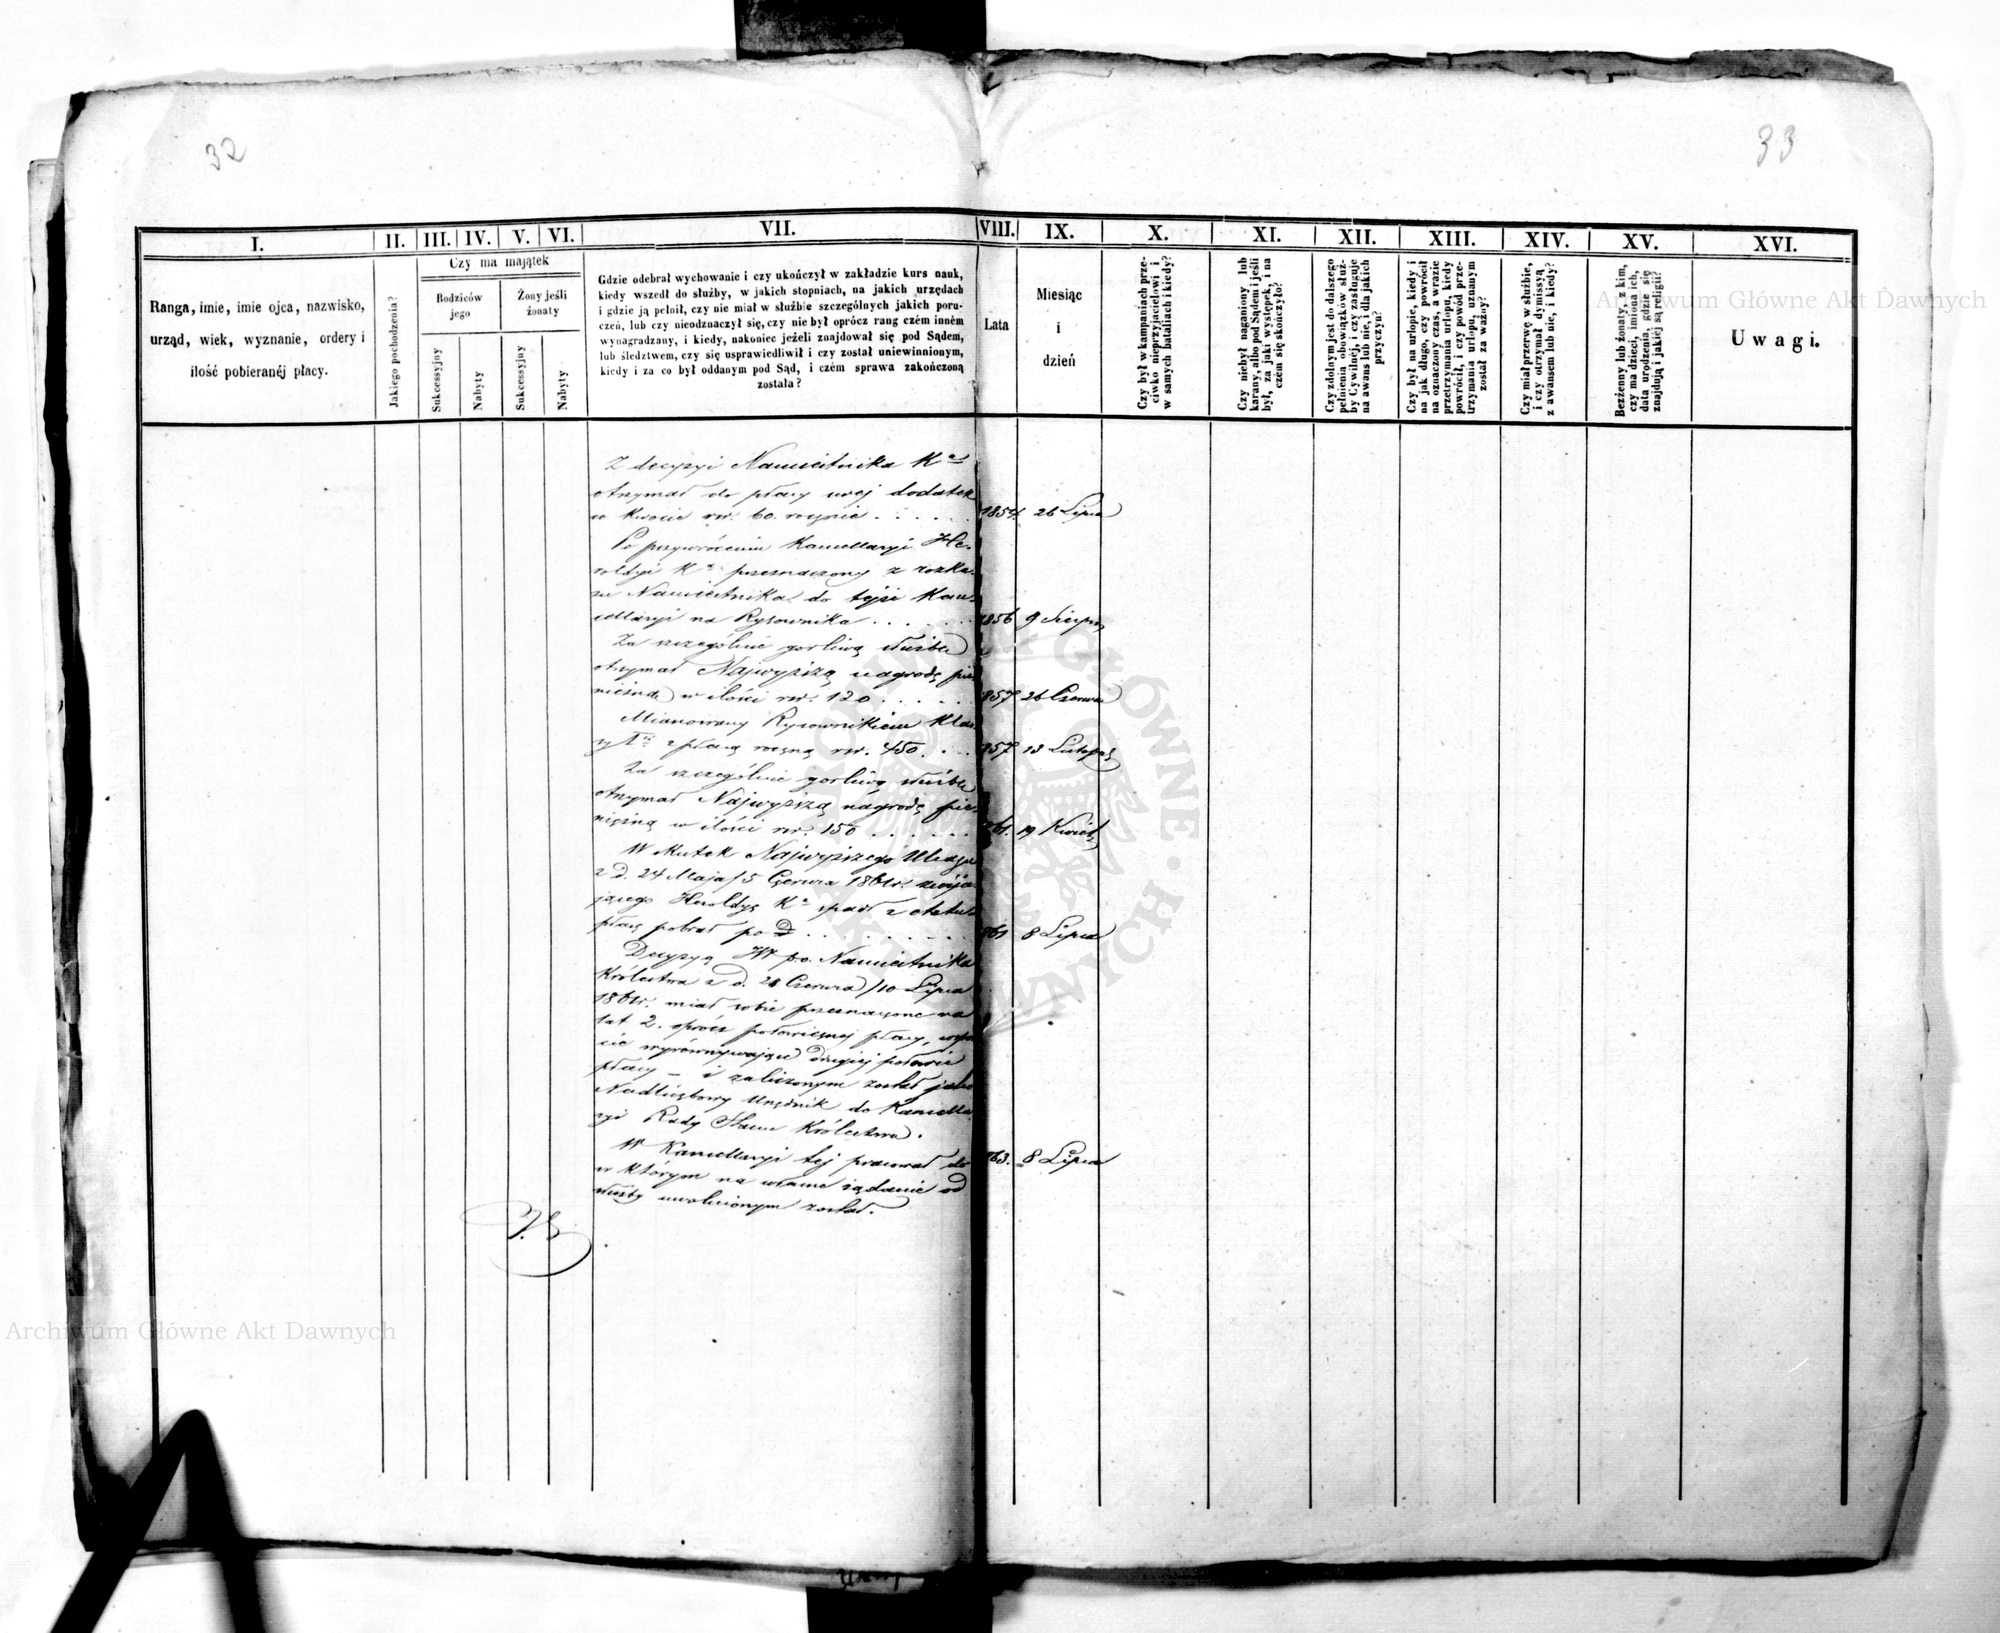 32
33
I. II. III. IV. V. VI. VII. VIII. IX. X. XI. XII. XIII. XIV. XV. XVI.
Ranga, imie, imie ojca, nazwisko,
urząd, wiek, wyznanie, ordery i
ilość pobieranéj płacy.
Jakiego pochodzenia?
Czy ma majątek
Rodziców
jego
Żony jeśli
żonaty
Sukcessyjny
Nabyty
Sukcessyjny
Nabyty
Gdzie odebrał wychowanie i czy ukończył w zakładzie kurs nauk,
kiedy wszedł do służby, w jakich stopniach, na jakich urzędach
i gdzie ją pełnił, czy nie miał w służbie szczególnych jakich poru-
czeń, lub czy nieodznaczył się, czy nie był oprócz rang czém inném
wynagradzany, i kiedy, nakoniec jeżeli znajdował się pod Sądem,
lub śledztwem, czy się usprawiedliwił i czy został uniewinnionym,
kiedy i za co był oddanym pod Sąd, i czém sprawa zakończoną
została?
Lata
Miesiąc
i
dzień
Czy był w kampaniach prze-
ciwko nieprzyjacielowi i
w samych bataliach i kiedy?
Czy niebył naganiony lub
karany, albo pod Sądem i jeśli
był, za jaki występek, i na
czém się skończyło?
Czy zdolnym jest do dalszego
pełnienia obowiązków służ-
by Cywilnéj, i czy zasługuje
na awans lub nie, i dla jakich
przyczyn?
Czy był na urlopie, kiedy i
na jak długo, czy powrócił
na oznaczony czas, a w razie
przetrzymania urlopu, kiedy
powrócił, i czy powód prze-
trzymania urlopu, uznanym
został za ważny?
Czy miał przerwę w służbie,
i czy otrzymał dymissyą
z awansem lub nie, i kiedy?
Bezżenny lub żonaty, z kim,
czy ma dzieci, imiona ich,
data urodzenia, gdzie się
znajdują i jakiéj są religii?
Uwagi.
Z decyzyi Namiestnika K<sup>a</sup>
otrzymał do płacy swej dodatek
w kwocie rsr. 60. rocznie . . . . . 1854 26 Lipca
Po przywróceniu Kancellaryi He-
roldyi K<sup>a</sup> przeznaczony z rozka-
zu Namiestnika do tejże Kan-
cellaryi na Rysownika . . . . . 1856 9 Sierpn
Za szczególnie gorliwą służbę
otrzymał Najwyższą nagrodę pie-
niężną w ilości rsr. 120 . . . . . 857 26 Czerwca
Mianowany Rysownikiem Kla-
sy I<sup>ej</sup> z płacą roczną rsr. 450. . . 857 13 Listopa
Za szczególnie gorliwą służbę
otrzymał Najwyższą nagrodę pie-
niężną w ilości rsr. 150 . . . . . 61. 19 Kwiet
W skutek Najwyższego Ukazu
z d. 24 Maja/5 Czerwca 1861r. zwija-
jącego Heroldyę K<sup>a</sup> spadł z etatu
płacę pobrał po D . . . . . 861 8 Lipca
Decyzyą JW p.o. Namiestnika
Królestwa z d. 28 Czerwca/10 Lipca
1861r. miał sobie przeznaczone na
lat 2. oprócz połowicznej płacy, wspar
cie wyrównywające drugiej połowie
płacy – i zaliczonym został jako
Nadliczbowy Urzędnik do Kancella
ryi Rady Stanu Królestwa.
W Kancellaryi tej pracował do 863. 8 Lipca
w którym na własne żądanie od
służby uwolnionym został.
Archiwum Główne Akt Dawnych
Archiwum Główne Akt Dawnych